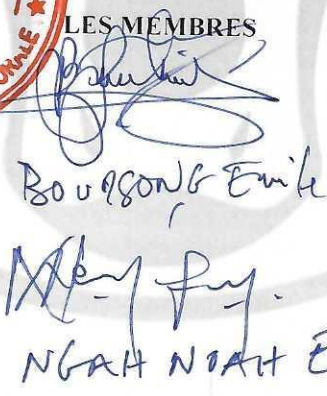 ORALE
LES MEMBRES
BOURSONG Emile
NGAH NOAH E